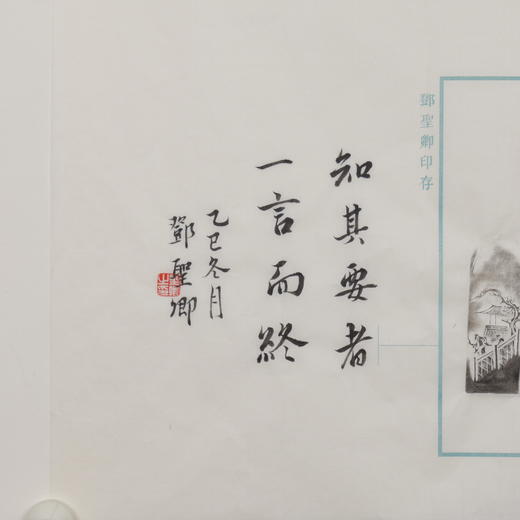 鄧聖卿印存
知其要者
一言而終
乙巳冬月
鄧聖卿